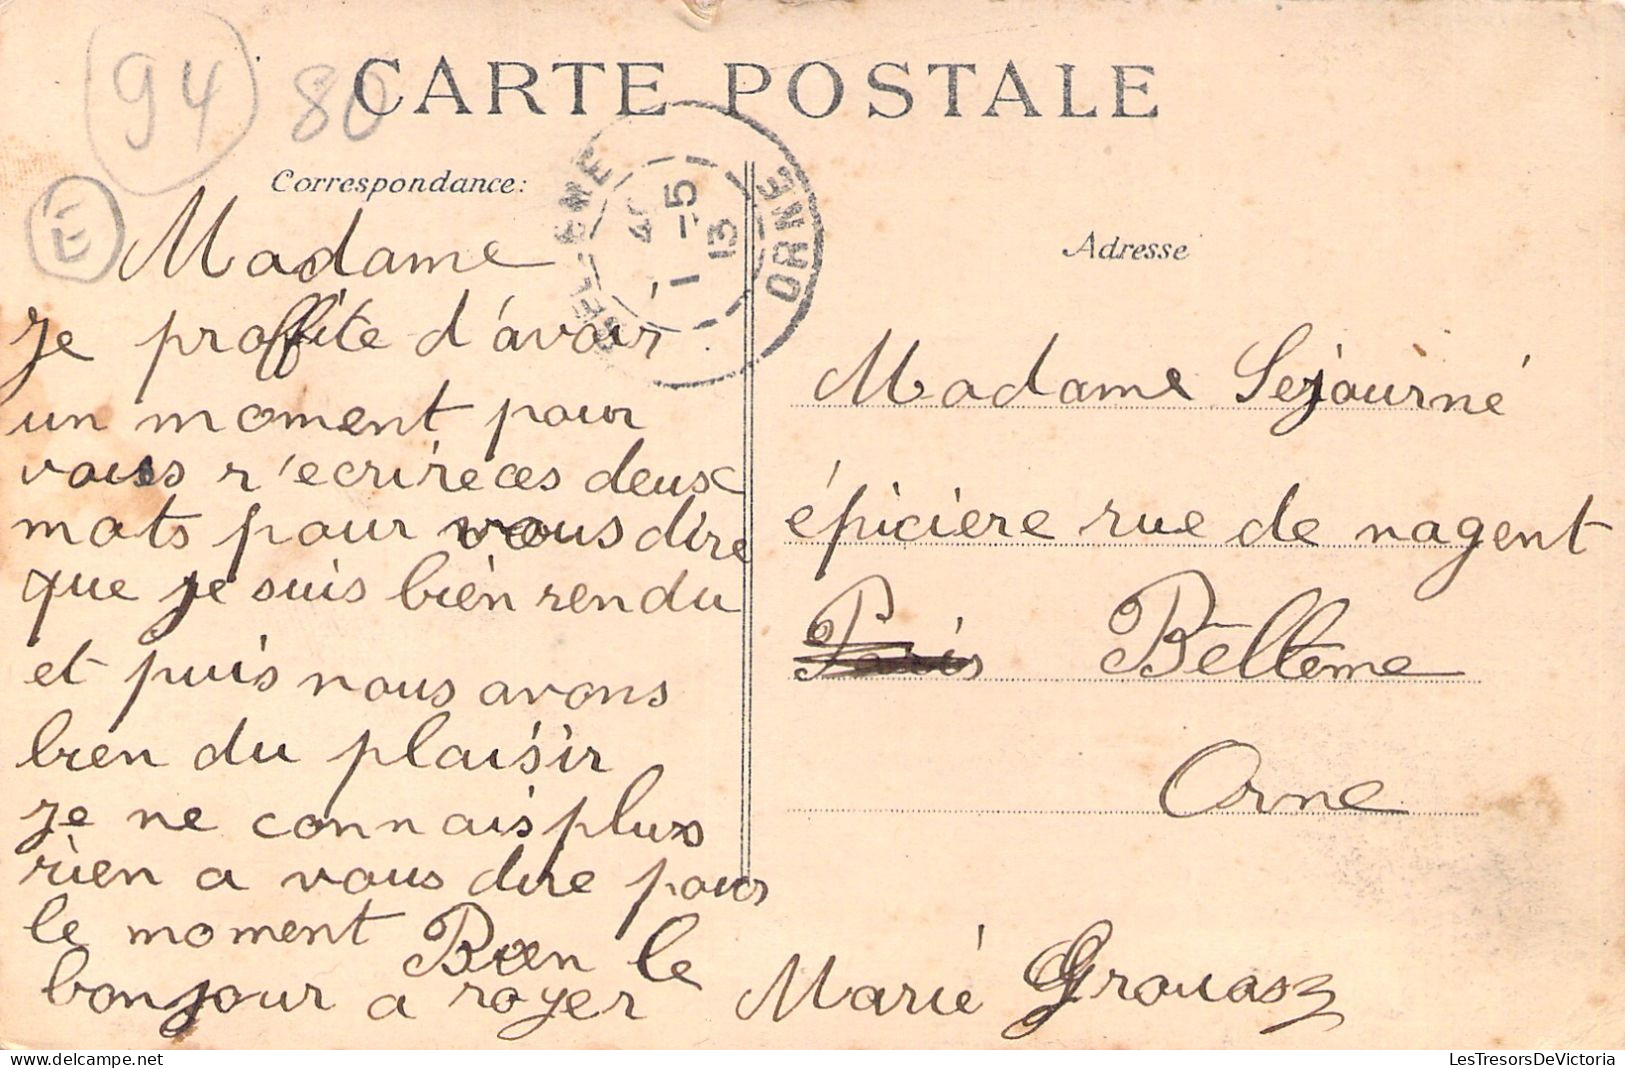 94
80
E
CARTE POSTALE
Correspondance:
Madame
je proffite d'avoir
un moment pour
vous r'ecrire ces deux
mots pour vous dire
que je suis bien rendu
et puis nous avons
bien du plaisir
je ne connais plus
rien a vous dire pour
le moment Bien le
bonjour a royer
Marie
BELLEME
ORNE
1 -5
13
Adresse
Madame Sejourné
épiciere rue de nogent
Paris Bellême
Orne
LesTresorsDeVictoria